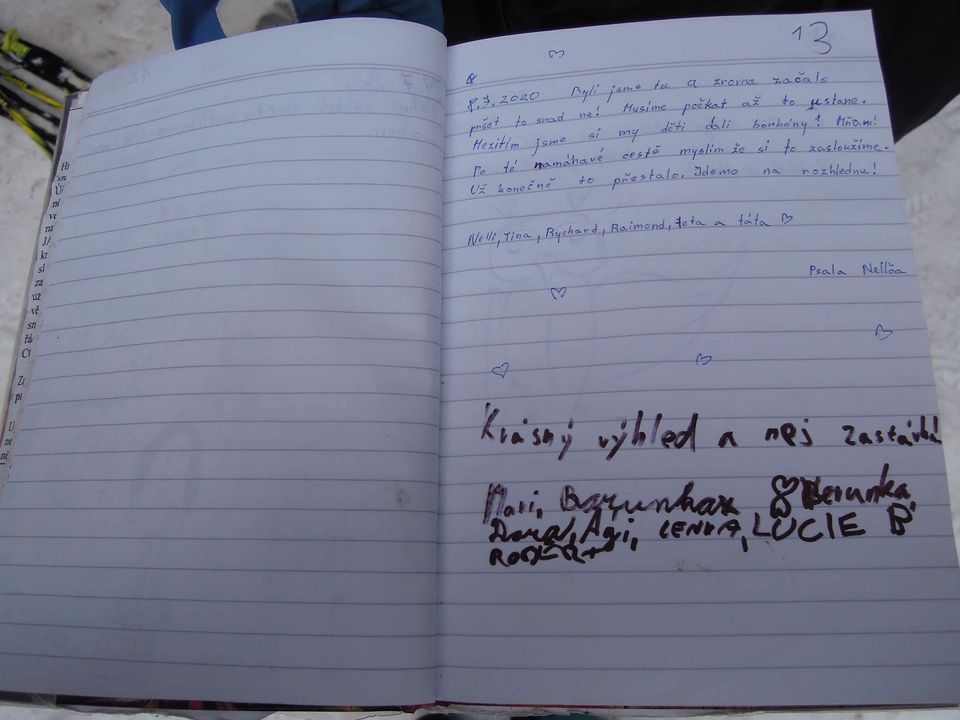 13
8.7.2020 Byli jsme tu a zrovna začalo
pršet to snad ne! Musíme počkat až to ustane.
Mezitím jsme si my děti dali bonbóny! Mňam!
Po té namáhavé cestě myslim že si to zasloužíme.
Už konečně to přestalo. Jdeme na rozhlednu!
Nelli, Tina, Rychard, Raimond, teta a táta
Psala Nellča
Krásný výhled a nej zastávka
Mari, Barunka Berunka,
Dora, Agi, LENKA, LUCIE B